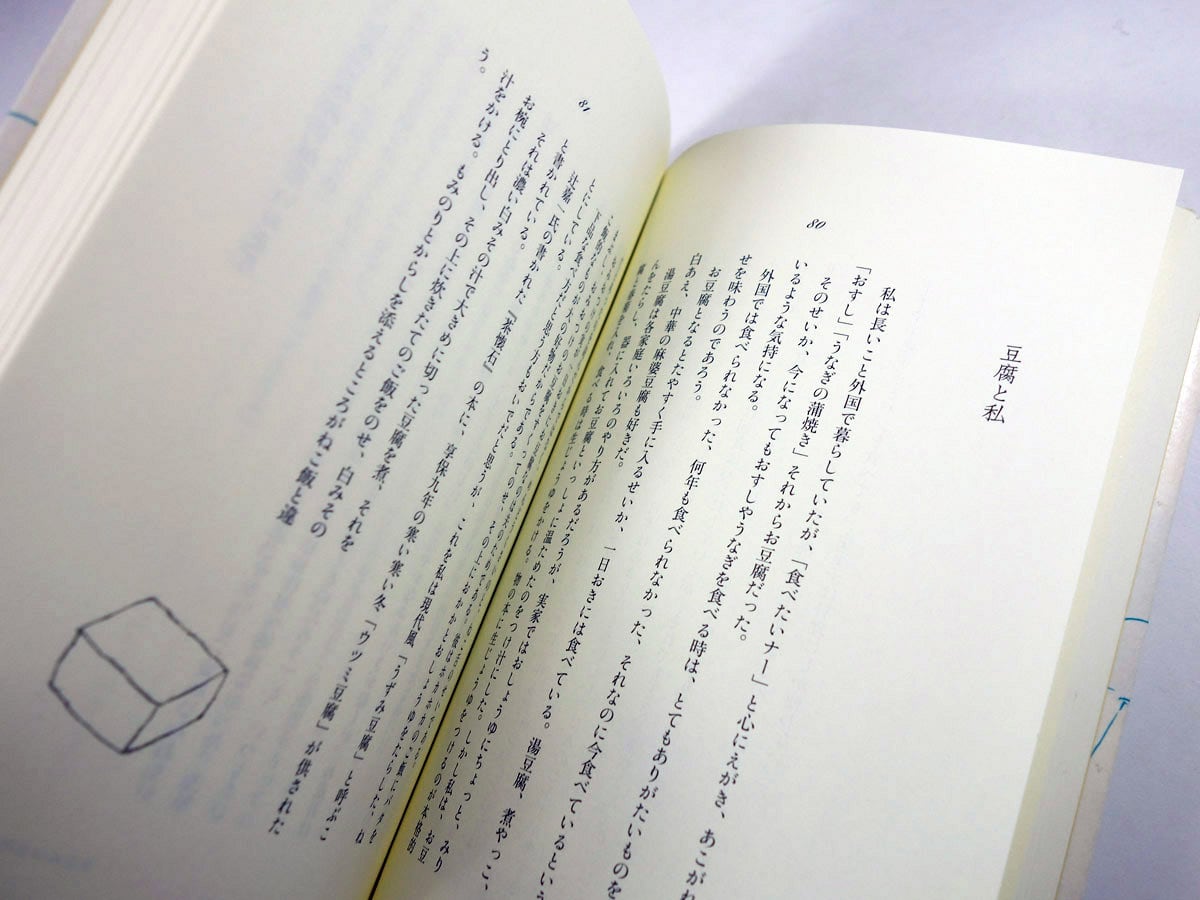 80
豆腐と私
私は長いこと外国で暮らしていたが、「食べたいナー」と心にえがき、あこがれ
「おすし」「うなぎの蒲焼き」それからお豆腐だった。
そのせいか、今になってもおすしやうなぎを食べる時は、とてもありがたいものを
いるような気持になる。
外国では食べられなかった、何年も食べられなかった、それなのに今食べているという
せを味わうのであろう。
お豆腐となるとたやすく手に入るせいか、一日おきには食べている。湯豆腐、煮やっこ、
白あえ、中華の麻婆豆腐も好きだ。
湯豆腐は各家庭いろいろのやり方があるだろうが、実家ではおしょうゆにちょっと、みり
んをたらし、器に入れてお豆腐といっしょに温ためたのをつけ汁にした。しかし私は、お豆
食べる時は生じょうゆをかける。物の本に生じょうゆをつけるのが本格的
81
と書かれている。
辻嘉一氏の書かれた『茶懐石』の本に、享保九年の寒い寒い冬「ウツミ豆腐」が供された
それは濃い白みその汁で大きめに切った豆腐を煮、それを
お椀にとり出し、その上に炊きたてのご飯をのせ、白みその
汁をかける。もみのりとからしを添えるところがねこ飯と違
う。